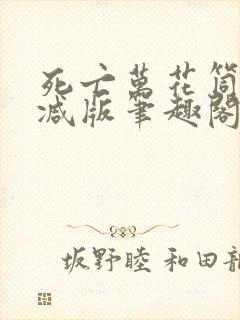 死亡萬花筒
減版筆趣閣
坂野睦 和田龍